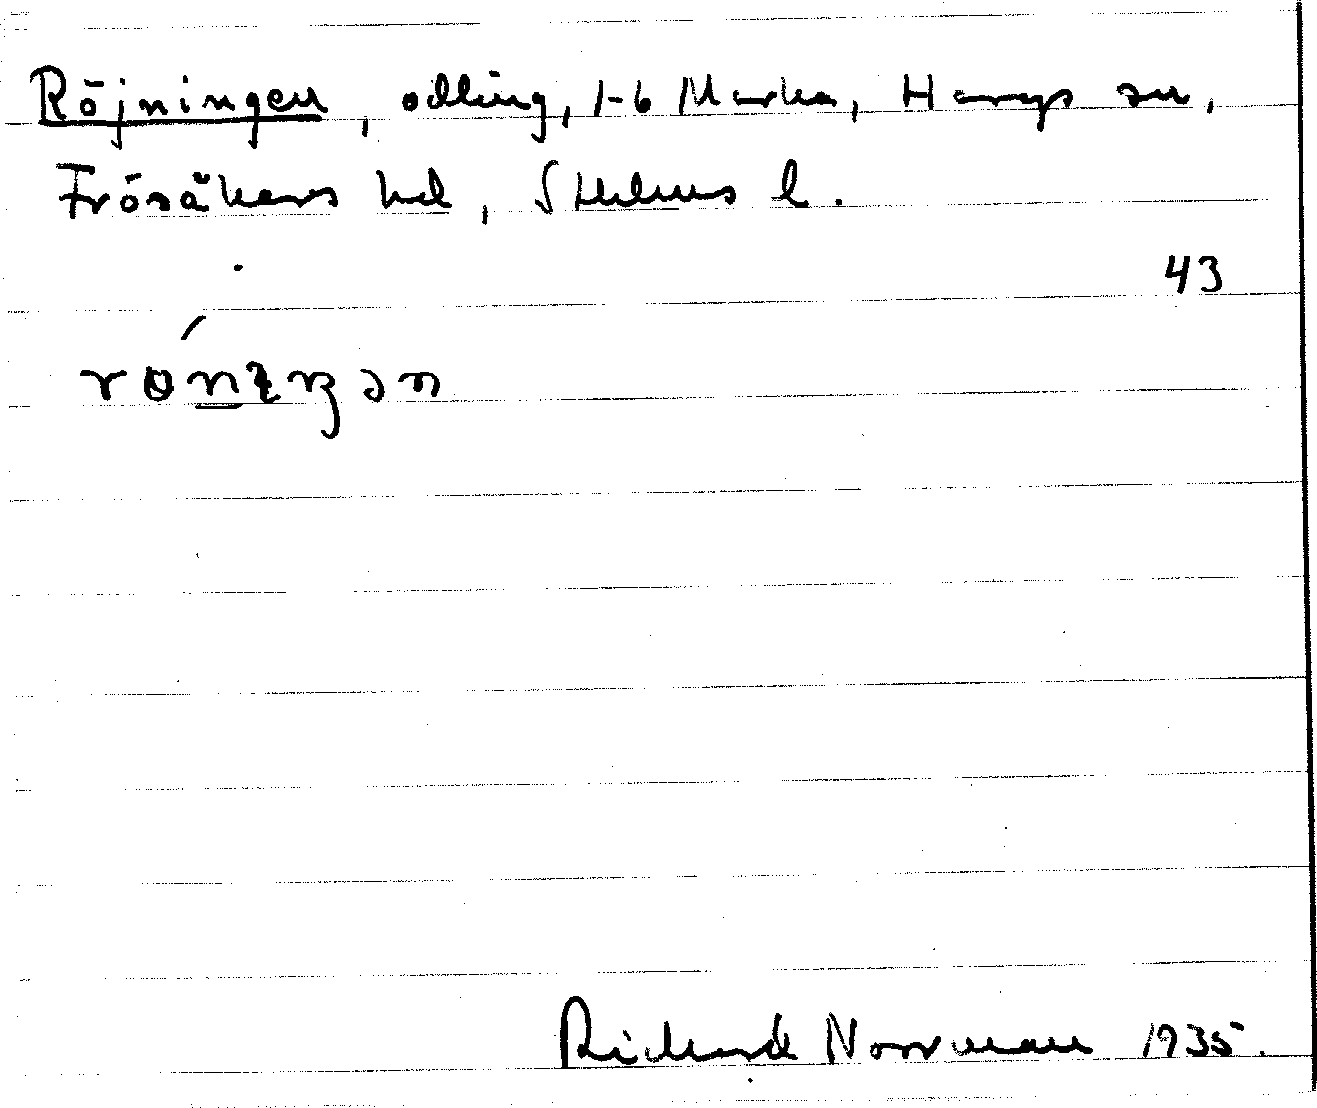 Röjningen, odling, 1-6 Marka, Hargs sn,
Frösåkers hd, Sthlms l.
43
Richard Norrman 1935.